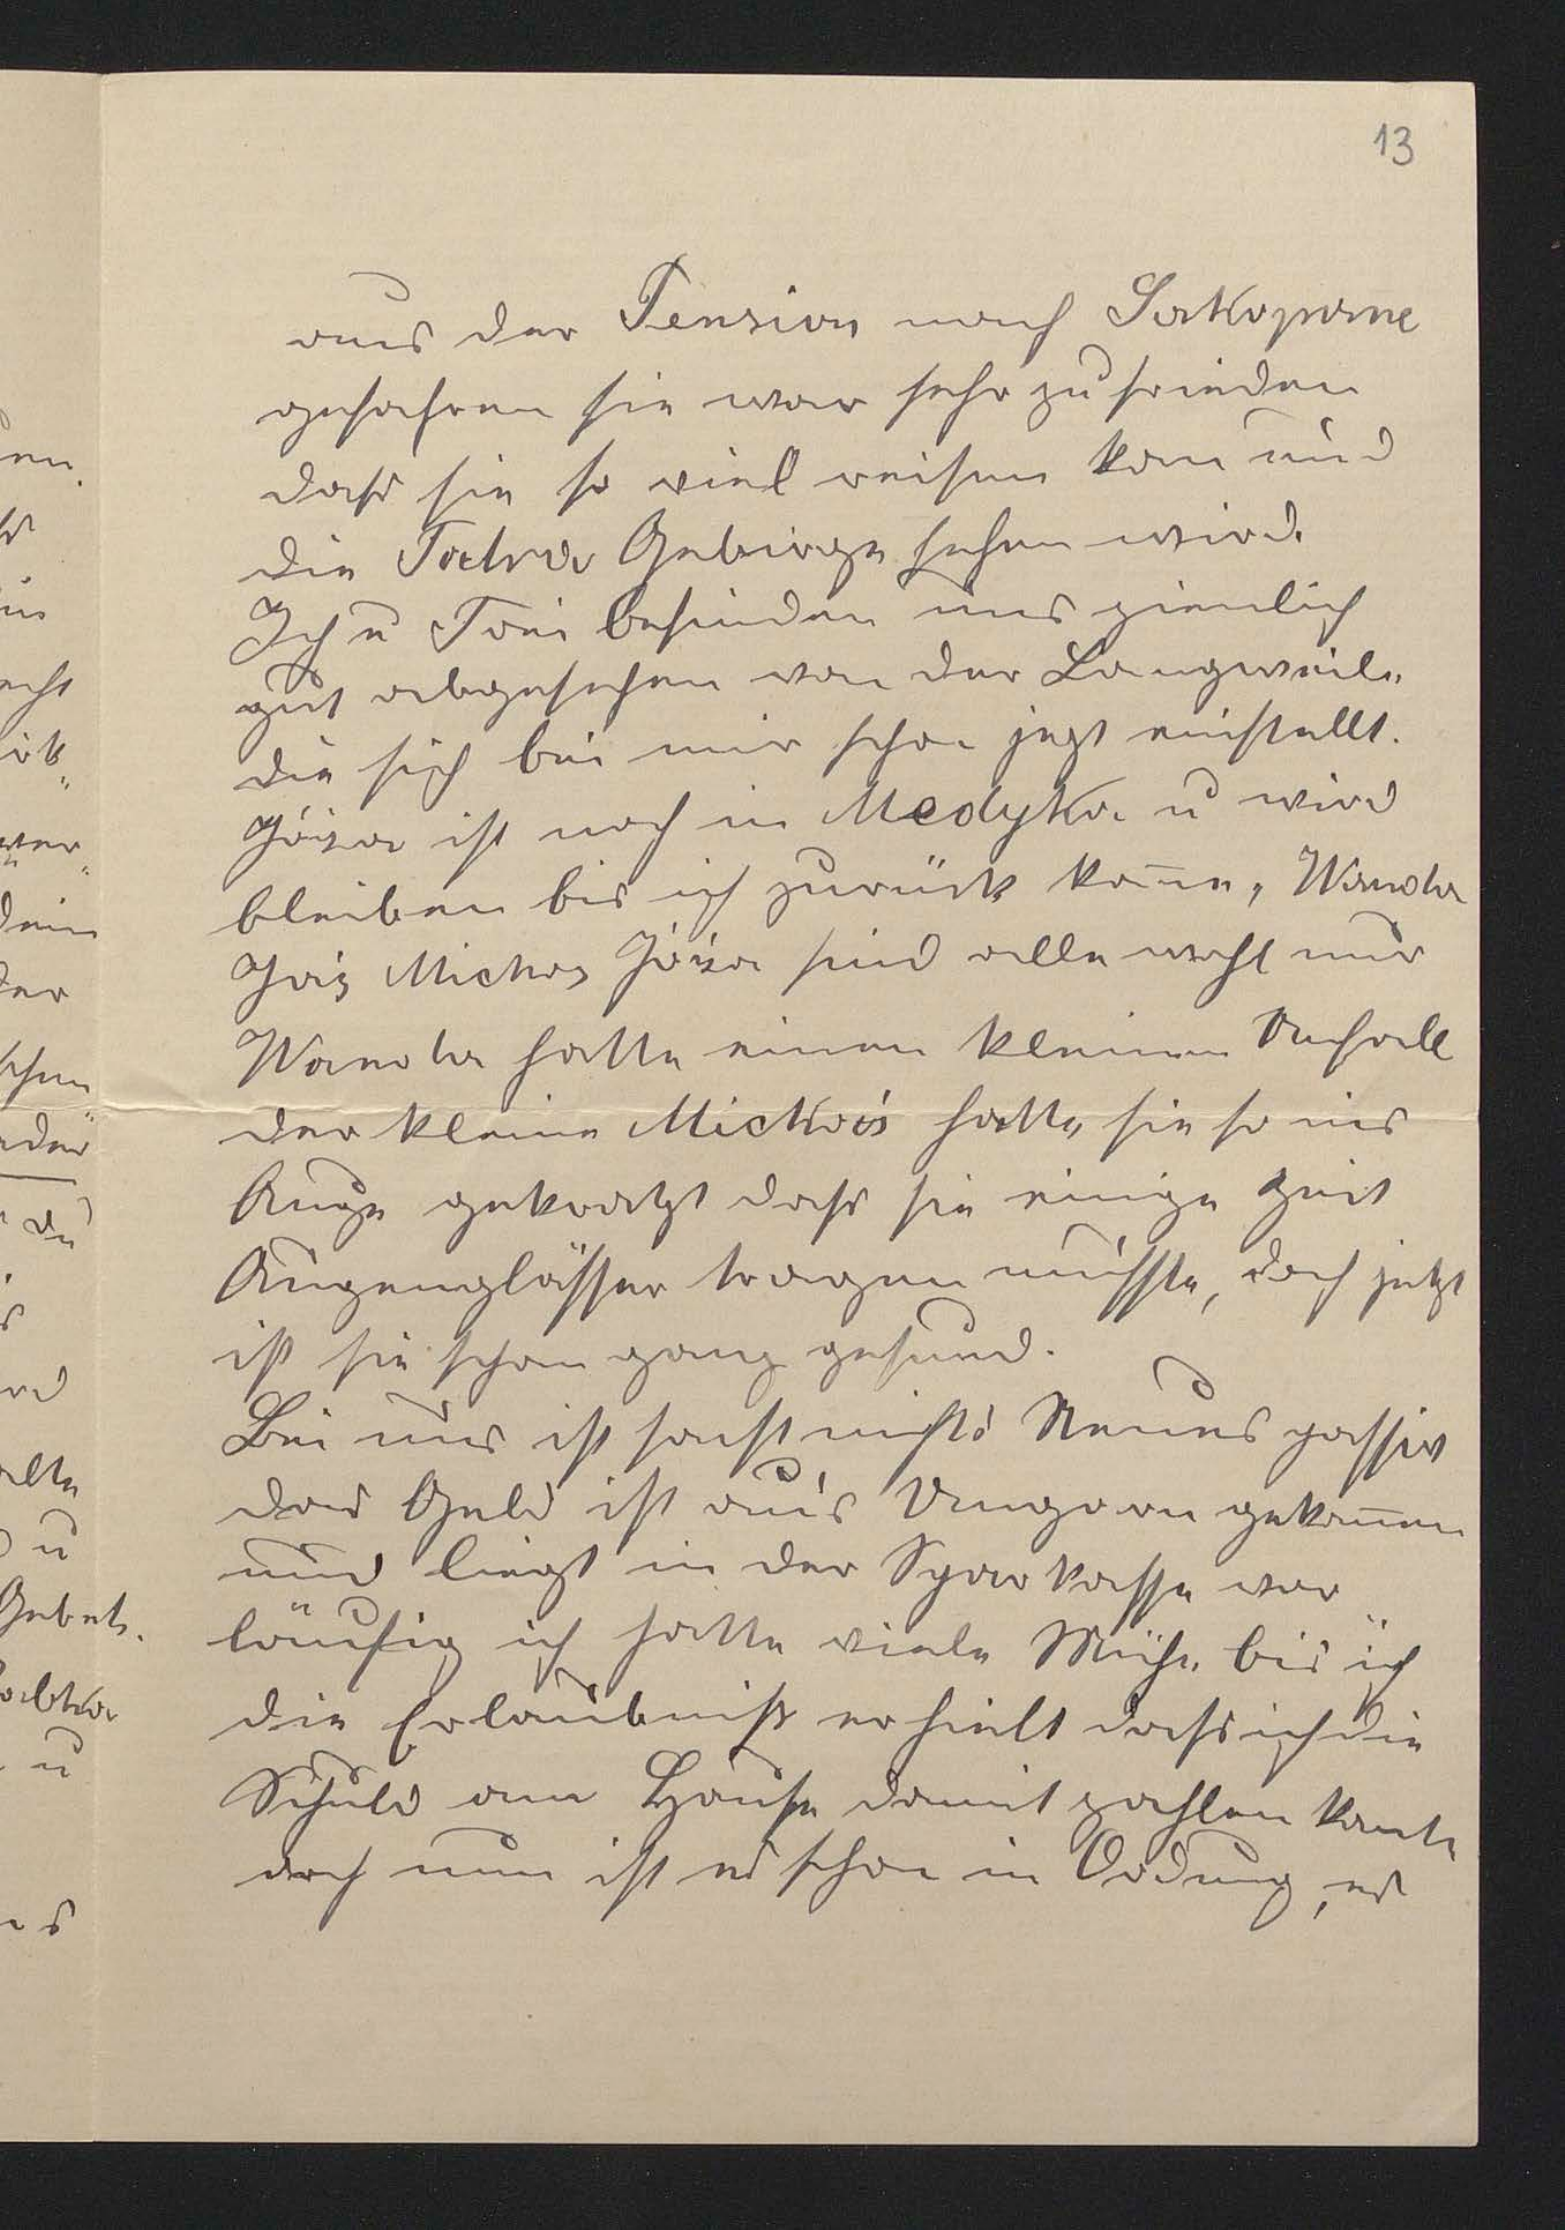 13
aus der Pension nach Sakopane
gefahren sie war sehr zufrieden
dass sie so viel reisen kan und
die Tatra Gebirge sehen wird.
Ich u Toni befinden uns ziemlich
gut abgesehen von der Langweile
die sich bei mir schon jezt einstellt.
ist noch in Medyka u wird
bleiben bis ich zurück kom̅e, Wanda
sind alle wohl nur
Wanda hatte einen kleinen Unfall
der kleine hatte sie so ins
Auge gekratzt dass sie einige Zeit
Augenglässer tragen musste, doch jetzt
ist sie schon ganz gesund.
Bei uns ist sonst nichts Neues passirt
das Geld ist aus Ungarn gekom̅en
und liegt in der Sparkasse vor
läufig ich hatte viele Mühe bis ich
die Erlaubniss erhielt dass ich die
Schuld am Hause damit zahlen kante
doch nun ist es schon in Ordung, es